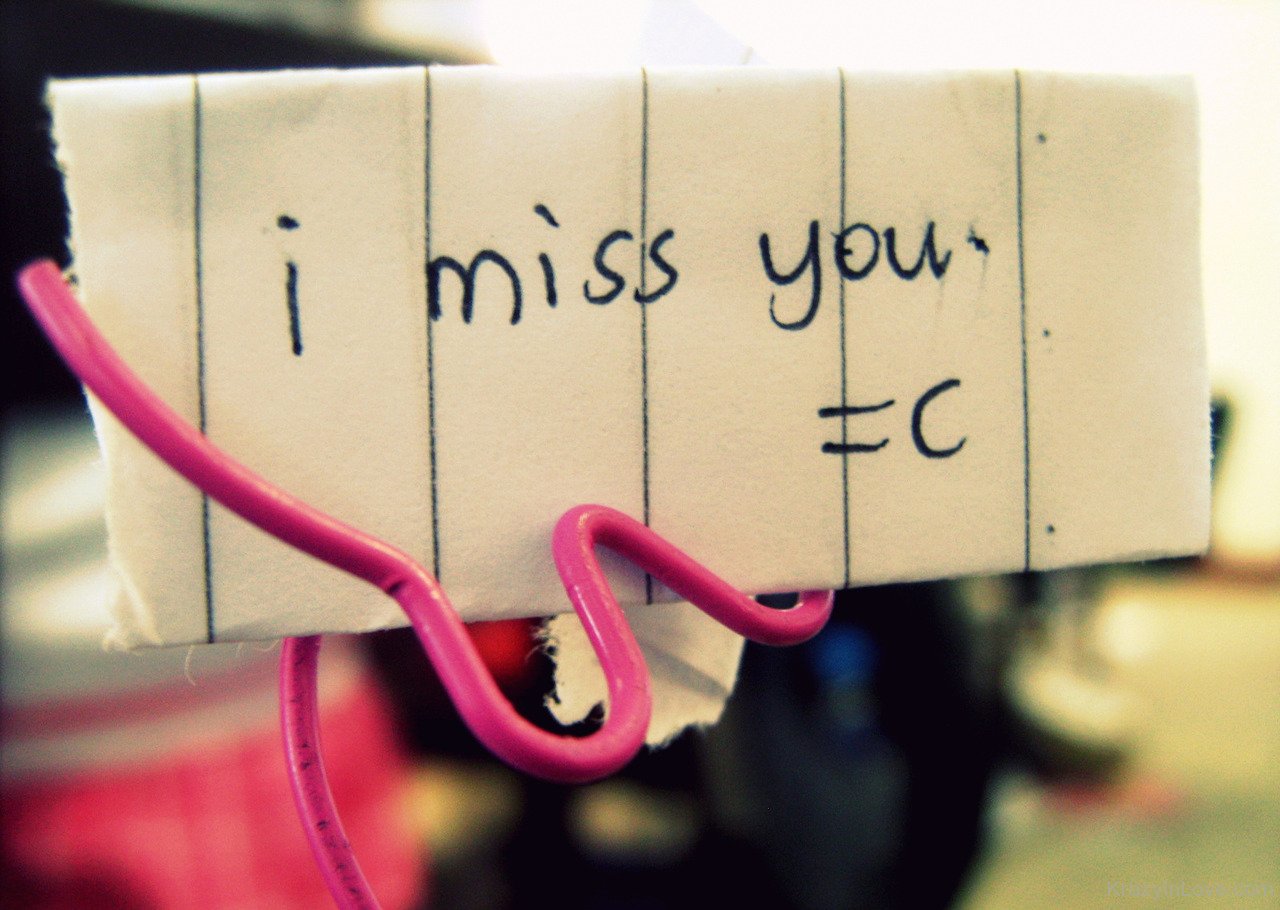 i miss you.
=C